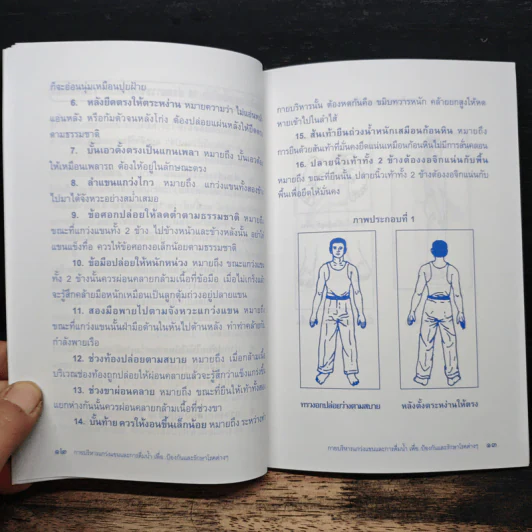 ก็จะอ่อนนุ่มเหมือนปุยฝ้าย
6. หลังยืดตรงให้ตระหง่าน หมายความว่า ไม่แอ่นหน้า
แอ่นหลัง หรือก้มตัวจนหลังโก่ง ต้องปล่อยแผ่นหลังให้ยืดตรง
ตามธรรมชาติ
7. บั้นเอวตั้งตรงเป็นแกนเพลา หมายถึง บั้นเอว
ให้เหมือนเพลารถ ต้องให้อยู่ในลักษณะตรง
8. ลำแขนแกว่งไกว หมายถึง แกว่งแขนทั้งสองข้าง
ไปมาได้จังหวะอย่างสม่ำเสมอ
9. ข้อศอกปล่อยให้ลดต่ำตามธรรมชาติ หมายถึง
ขณะที่แกว่งแขนทั้ง 2 ข้าง ไปข้างหน้าและข้างหลังนั้น อย่าให้
แขนแข็งทื่อ ควรให้ข้อศอกงอเล็กน้อยตามธรรมชาติ
10. ข้อมือปล่อยให้หนักหน่วง หมายถึง ขณะแกว่งแขน
ทั้ง 2 ข้างนั้นควรผ่อนคลายกล้ามเนื้อที่ข้อมือ เมื่อไม่เกร็งแล้ว
จะรู้สึกคล้ายมือหนักเหมือนเป็นลูกตุ้มถ่วงอยู่ปลายแขน
11. สองมือพายไปตามจังหวะแกว่งแขน หมายถึง
ขณะที่แกว่งแขนนั้นฝ่ามือด้านในหันไปด้านหลัง ทำท่าคล้าย
กำลังพายเรือ
12. ช่วงท้องปล่อยตามสบาย หมายถึง เมื่อกล้ามเนื้อ
บริเวณช่องท้องถูกปล่อยให้ผ่อนคลายแล้วจะรู้สึกว่าแข็งแกร่งขึ้น
13. ช่วงขาผ่อนคลาย หมายถึง ขณะที่ยืนให้เท้าทั้งสอง
แยกห่างกันนั้นควรผ่อนคลายกล้ามเนื้อที่ช่วงขา
14. บั้นท้าย ควรให้งอนขึ้นเล็กน้อย หมายถึง ระหว่างทำ
๑๒
การบริหารแกว่งแขนและการดื่มน้ำ เพื่อ ป้องกันและรักษาโรคต่างๆ
กายบริหารนั้น ต้องหดก้นคือ ขมิบทวารหนัก คล้ายยกสูงให้หด
หายเข้าไปในลำไส้
15. ส้นเท้ายืนถ่วงน้ำหนักเสมือนก้อนหิน หมายถึง
การยืนด้วยส้นเท้าที่มั่นคงยึดแน่นเหมือนก้อนหินไม่มีการสั่นคลอน
16. ปลายนิ้วเท้าทั้ง 2 ข้างต้องงอจิกแน่นกับพื้น
หมายถึง ขณะที่ยืนนั้น ปลายนิ้วเท้าทั้ง 2 ข้างต้องงอจิกแน่นกับ
พื้นเพื่อยึดให้มั่นคง
ภาพประกอบที่ 1
ทรวงอกปล่อยว่างตามสบาย
หลังตั้งตระหง่านให้ตรง
การบริหารแกว่งแขนและการดื่มน้ำ เพื่อ ป้องกันและรักษาโรคต่างๆ
๑๓